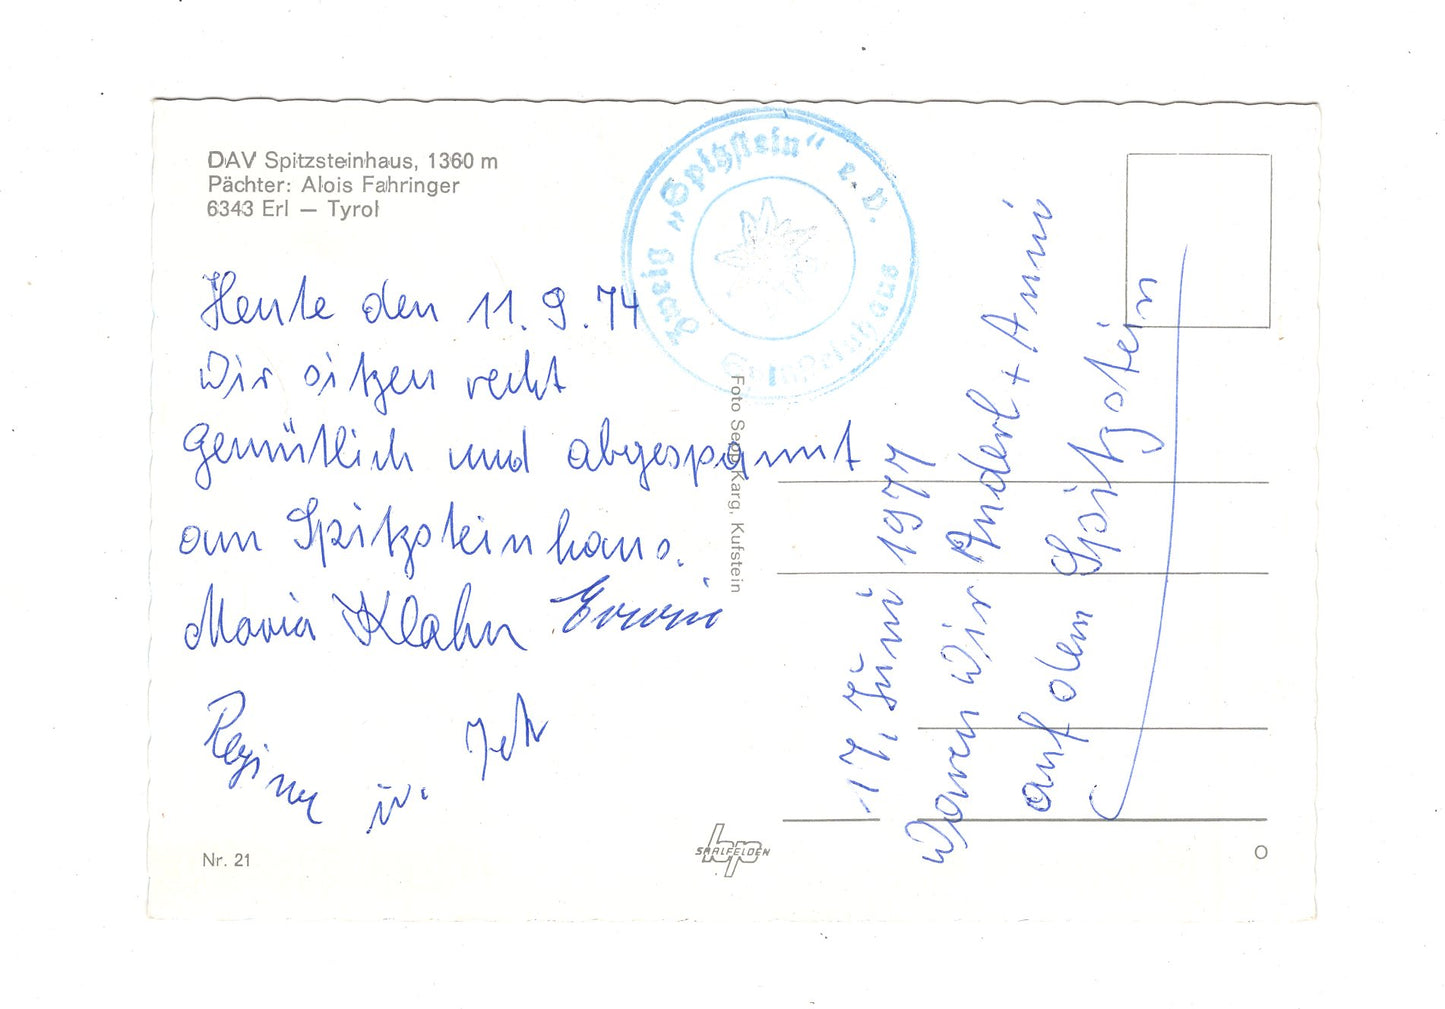 DAV Spitzsteinhaus, 1360 m
Pächter: Alois Fahringer
6343 Erl — Tyrol
„Spitzstein“ e. V.
Spitzsteinhaus
Heute den 11.9.74
Wir sitzen recht
gemütlich und abgespannt
am Spitzsteinhaus.
Maria Klahn Erwin
Regina
Foto Sepp Karg, Kufstein
17. Juni 1977
Waren wir Anderl + Anni
auf dem Spitzstein
Nr. 21
SAALFELDEN
O